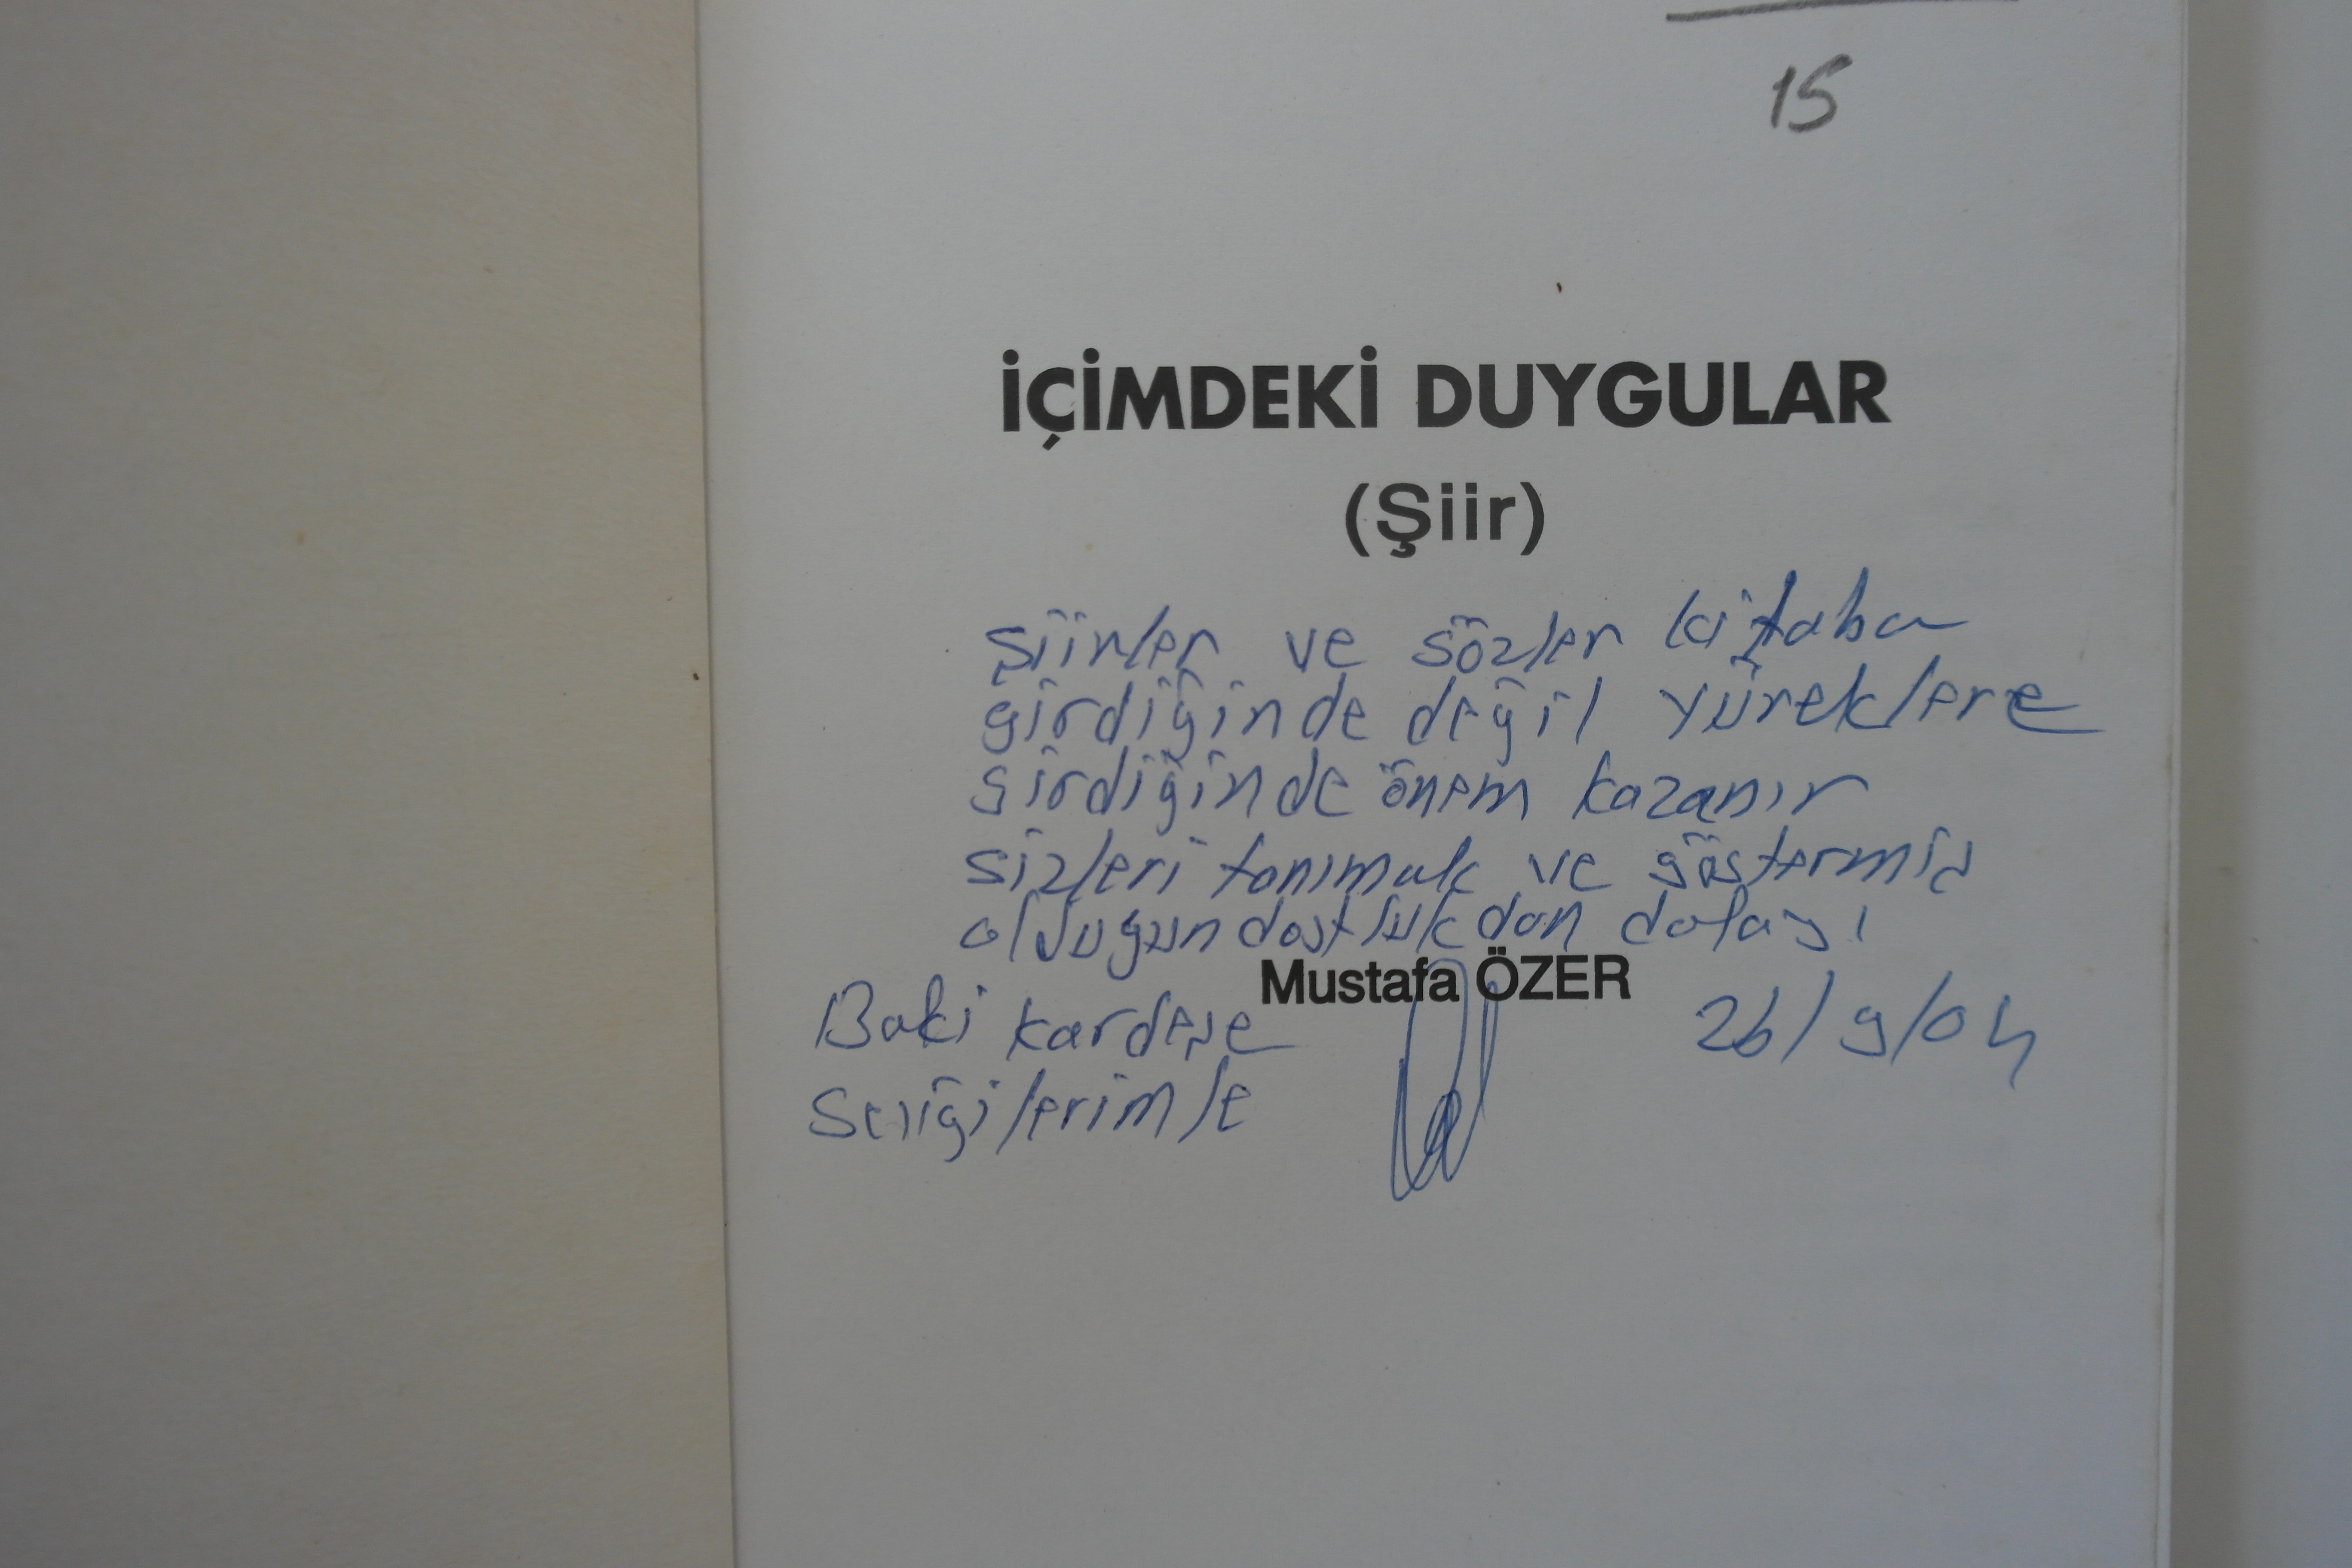 15
İÇİMDEKİ DUYGULAR
(Şiir)
Şiirler ve sözler kitaba
girdiğinde değil yüreklere
girdiğinde önem kazanır
sizleri tanımak ve göstermiş
olduğun dostlukdan dolayı
Mustafa ÖZER
Baki kardeşe 26/9/04
Sevgilerimle